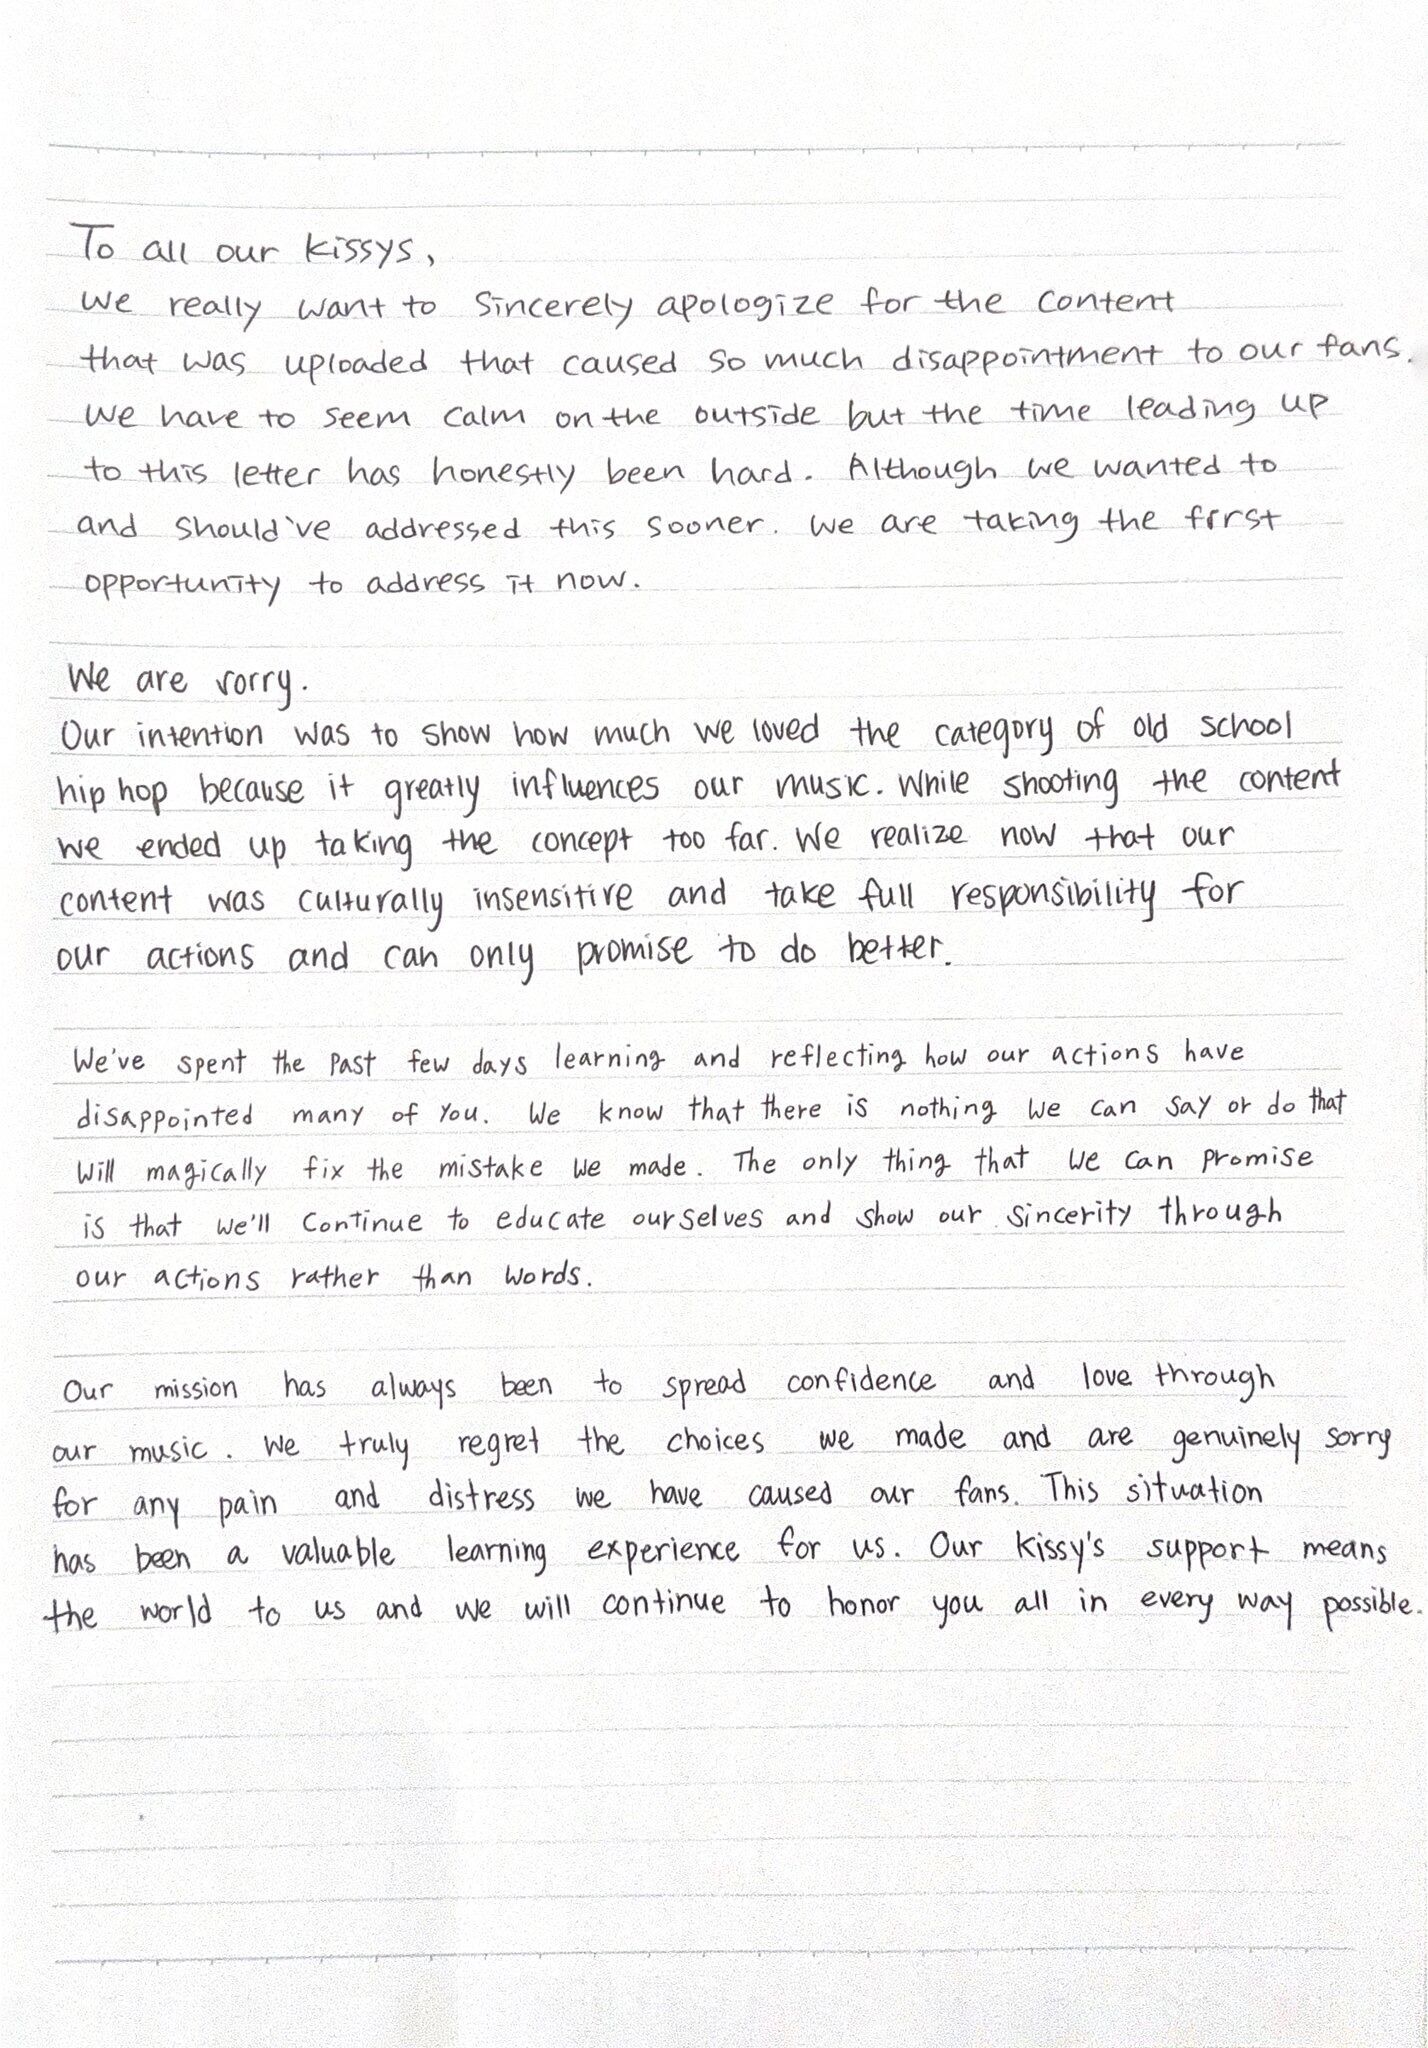 To all our kissys,
We really want to sincerely apologize for the content
that was uploaded that caused so much disappointment to our fans.
We have to seem calm on the outside but the time leading up
to this letter has honestly been hard. Although we wanted to
and should've addressed this sooner. We are taking the first
opportunity to address it now.
We are sorry.
Our intention was to show how much we loved the category of old school
hip hop because it greatly influences our music. While shooting the content
we ended up taking the concept too far. We realize now that our
content was culturally insensitive and take full responsibility for
our actions and can only promise to do better.
We've spent the past few days learning and reflecting how our actions have
disappointed many of you. We know that there is nothing we can say or do that
will magically fix the mistake we made. The only thing that we can promise
is that we'll continue to educate ourselves and show our sincerity through
our actions rather than words.
Our mission has always been to spread confidence and love through
our music. We truly regret the choices we made and are genuinely sorry
for any pain and distress we have caused our fans. This situation
has been a valuable learning experience for us. Our kissy's support means
the world to us and we will continue to honor you all in every way possible.